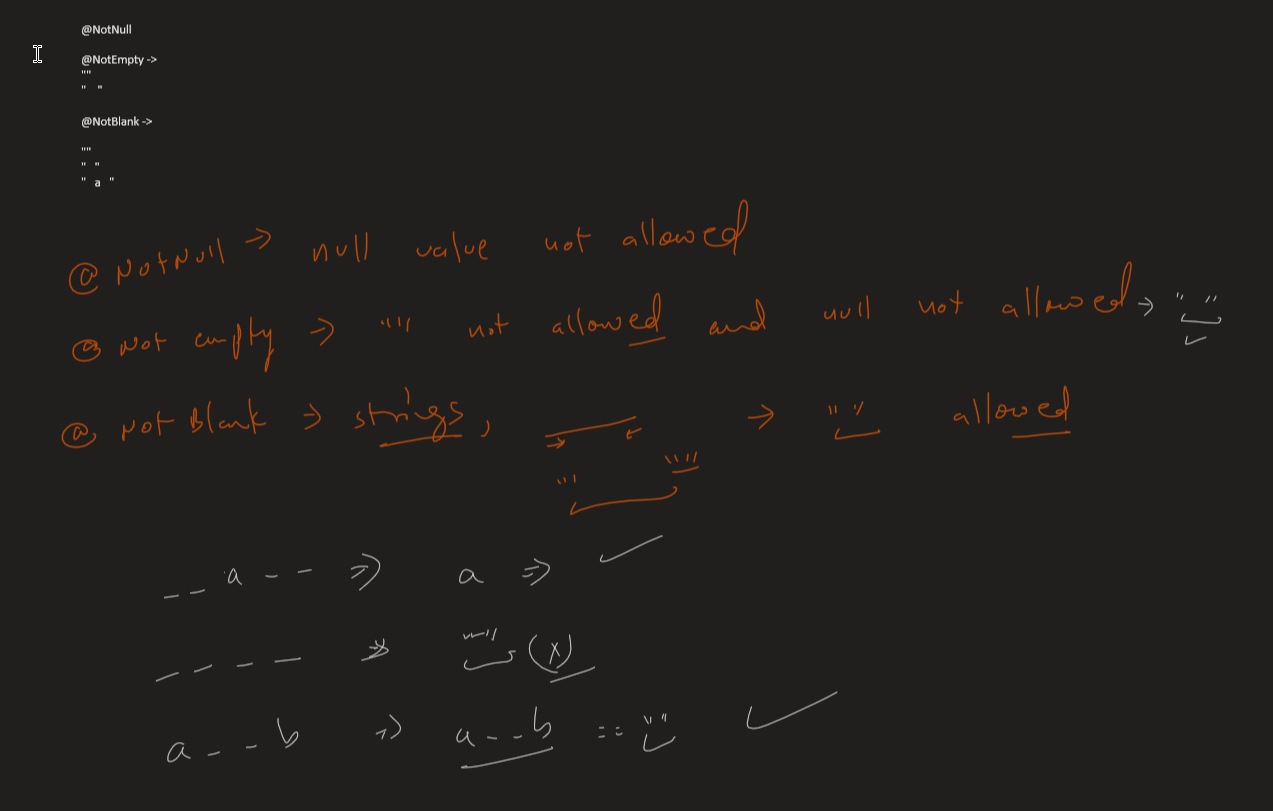 @NotNull
@NotEmpty ->
""
"  "
@NotBlank ->
""
"  "
"  a  "
@ NotNull => null value not allowed
@ Not empty => "" not allowed and null not allowed -> " "
@ Not Blank => strings, -> " " allowed
"" ""
_ _ a - - => a =>
_ _ _ _ => "" (x)
a - - b => a - - b == ""